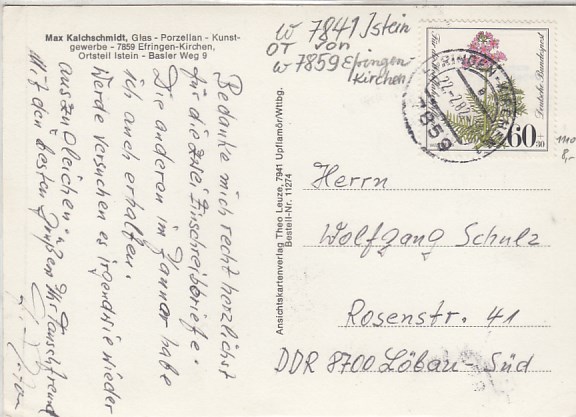 Max Kalchschmidt, Glas - Porzellan - Kunst-
gewerbe - 7859 Efringen-Kirchen,
Ortsteil Istein - Basler Weg 9
w 7841 Istein
OT von
w 7859 Efringen-
Kirchen
Deutsche Bundespost
60
+30
7859
8,-
Bedanke mich recht herzlichst
für die zwei Einschreibbriefe.
Die anderen im Janner habe
ich auch erhalten.
Werde versuchen es irgendwie wieder
auszugleichen.
Mit den besten Grüßen Ihr Tauschfreund
Ansichtskartenverlag Theo Leuze, 7941 Upflamör/Wttbg.
Bestell-Nr. 11274
Herrn
Wolfgang Schulz
Rosenstr. 41
DDR 8700 Löbau-Süd